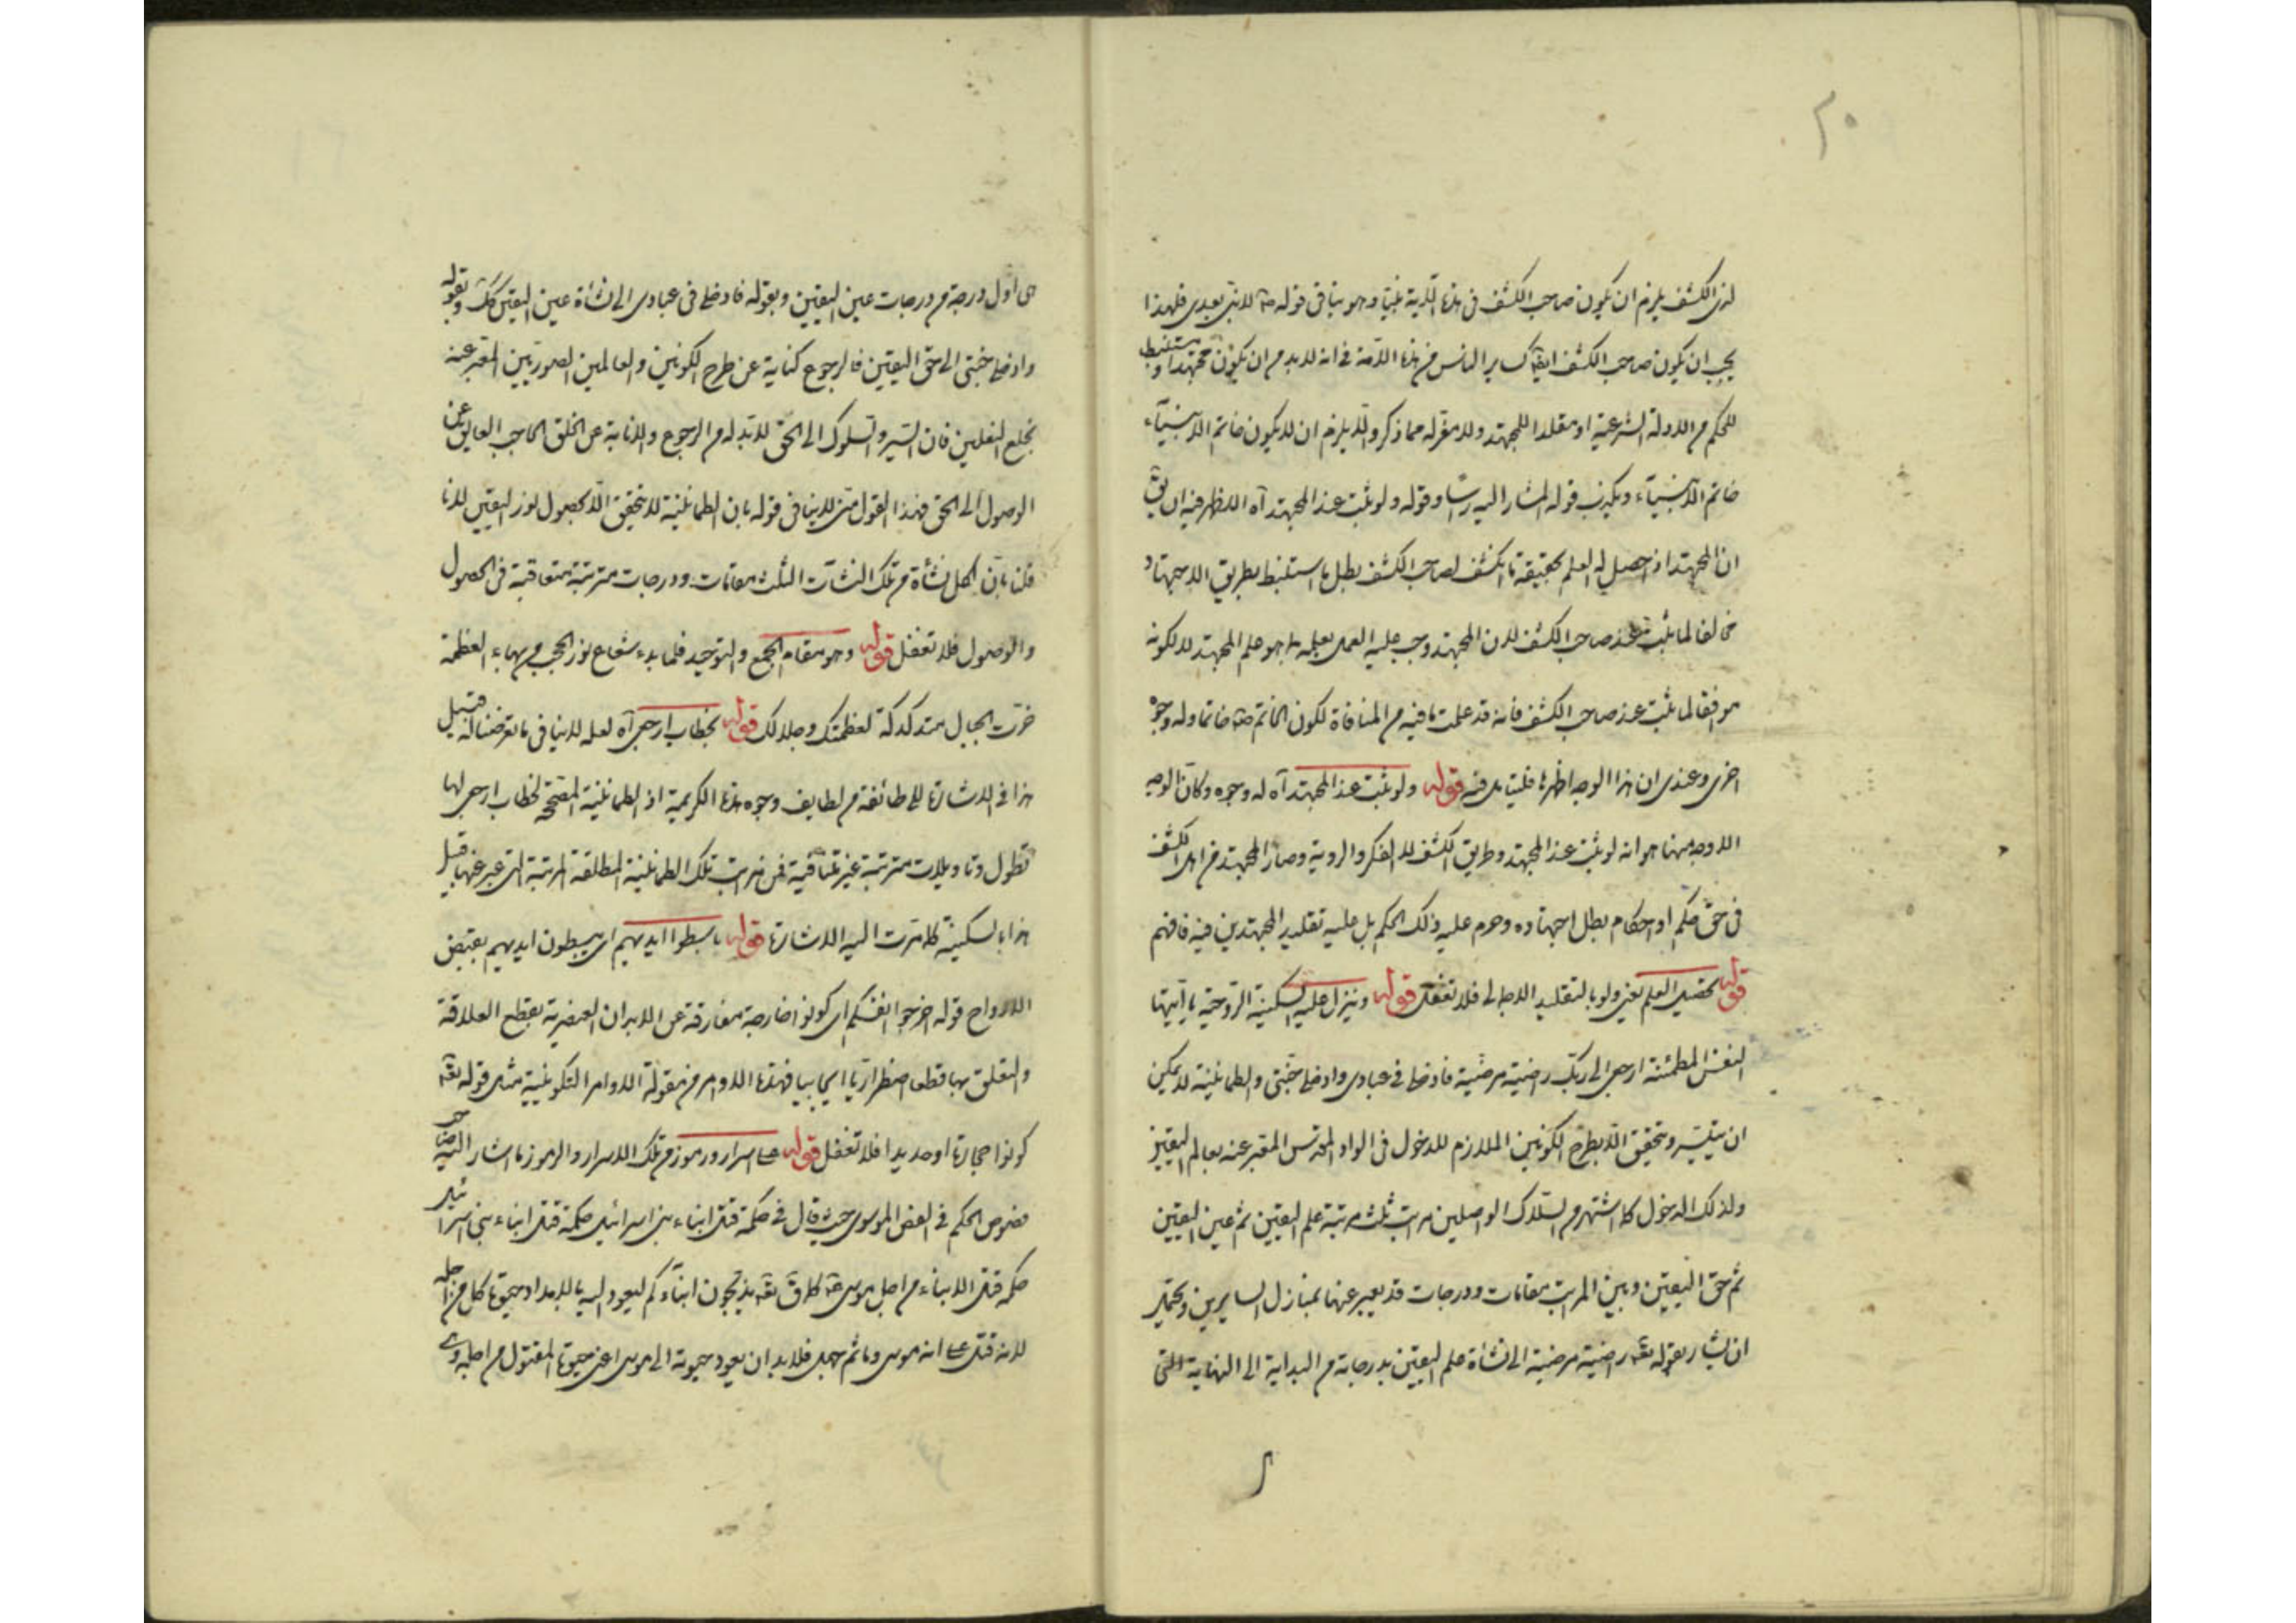 ٢٠
لذى الكشف يلزم ان يكون صاحب الكشف فى هذه نبيا وهو ينافى قوله ص لا نبى بعدى فلهذا
يجب ان يكون صاحب الكشف ايضا كساير الناس من هذه الامة فى انه لا بد من ان يكون مجتهدا ومستنبطا
للحكم من الادلة الشرعية او مقلدا للمجتهد ولا مفر له مما ذكر والا يلزم ان لا يكون خاتم الانبياء
خاتم الانبياء ويكذب قوله المشار اليه وقوله ولو ثبت عند المجتهد آه الاظهر فيه ان يق
ان المجتهد اذا حصل له العلم بحقيقة ما انكشف لصاحب الكشف بطل ما استنبط بطريق الاجتهاد
مخالفا لما ثبت عند صاحب الكشف لان المجتهد وجب عليه العمل بعلمه بما هو علم المجتهد لا لكونه
موافقا لما ثبت عند صاحب الكشف فانه قد علمت ما فيه من المنافاة لكون الخاتم ص خاتما وله وجوه
اخرى وعندى ان هذا الوجه اظهرها فليتامل فيه قوله ولو ثبت عند المجتهد آه له وجوه وكان الوجه
الاوجه منها هو انه لو ثبت عند المجتهد وطريق الكشف لا الفكر والروية وصار المجتهد من اهل الكشف
فى حق حكم او احكام بطل اجتهاده وحرم عليه ذلك الحكم بل عليه تقليد المجتهدين فيه فافهم
قوله بحصيل العلم يعنى ولو بالتقليد الاجمالى فلا تغفل قوله وينزل عليه السكينة الروحية يا ايتها
النفس المطمئنة ارجعى الى ربك راضية مرضية فادخلى فى عبادى وادخلى جنتى والطمانينة لا يمكن
ان يتيسر ويتحقق الا بطرح الكونين الملازم للدخول فى الواد المقدس المعبر عنه بعالم اليقين
ولذلك الدخول كما اشتهر من السلاك الواصلين مراتب ثلث مرتبة علم اليقين ثم عين اليقين
ثم حق اليقين وبين المراتب مقامات ودرجات قد يعبر عنها بمنازل السايرين ويحتمل
ان يشار بقوله تعه راضية مرضية الى نشأة علم اليقين بدرجاته من البداية الى النهاية التى
هى اول درجة من درجات عين اليقين وبقوله فادخلى فى عبادى الى نشأة عين اليقين كك وبقوله
وادخلى جنتى الى حق اليقين فالرجوع كناية عن طرح الكونين والعالمين الصوريين المعبر عنه
بخلع النعلين فان السير والسلوك الى الحق لا بد له من الرجوع والانابة عن الخلق الحاجب العايق عن
الوصول الى الحق فهذا القول منى لا ينافى قوله بان الطمانينة لا يتحقق الا بحصول نور اليقين لانا
قلنا بان لكل نشأة من تلك النشآت الثلث مقامات ودرجات مترتبة متعاقبة فى الحصول
والوصول فلا تغفل قوله وهو مقام الجمع والتوحيد فلما بدء شعاع نور الحجب من بهاء العظمة
خرت الجبال متدكدكة لعظمتك وجلالك قوله بخطاب ارجعى آه لعله لا ينافى ما تعرضنا له قبيل
هذا فى الاشارة الى طائفة من لطايف وجوه هذه الكريمة اذ الطمانينة المصححة لخطاب ارجعى لها
تطول وتاويلات مترتبة غير متنافية فمن مراتب تلك الطمانينة المطلقة المرتبة التى عبر عنها قبل
هذا بالسكينة كما مرت اليه الاشارة قوله باسطوا ايديهم اى يبسطون ايديهم بقبض
الارواح قوله اخرجوا انفسكم اى كونوا خارجة مفارقة عن الابدان العنصرية بقطع العلاقة
والتعلق بها قطعا اضطراريا فهذه الاوامر من مقولة الاوامر التكوينية مثل قوله تعه
كونوا حجارة او حديدا فلا تغفل قوله اسرار ورموز من تلك الاسرار والرموز ما اشار اليه صاحب
فصوص الحكم فى الفص الموسوى حيث قال فى حكمة قتل ابناء بنى اسرائيل حكمة قتل ابناء بنى اسرائيل
حكمة قتل الابناء من اجل موسى كما ق تعه يذبحون ابناءكم ليعود اليه بالامداد حيوة كل من اجله
لانه قتل على انه موسى وما ثم جهل فلا بد ان يعود حيوته الى موسى اعنى حيوة المقتول من اجله وهى